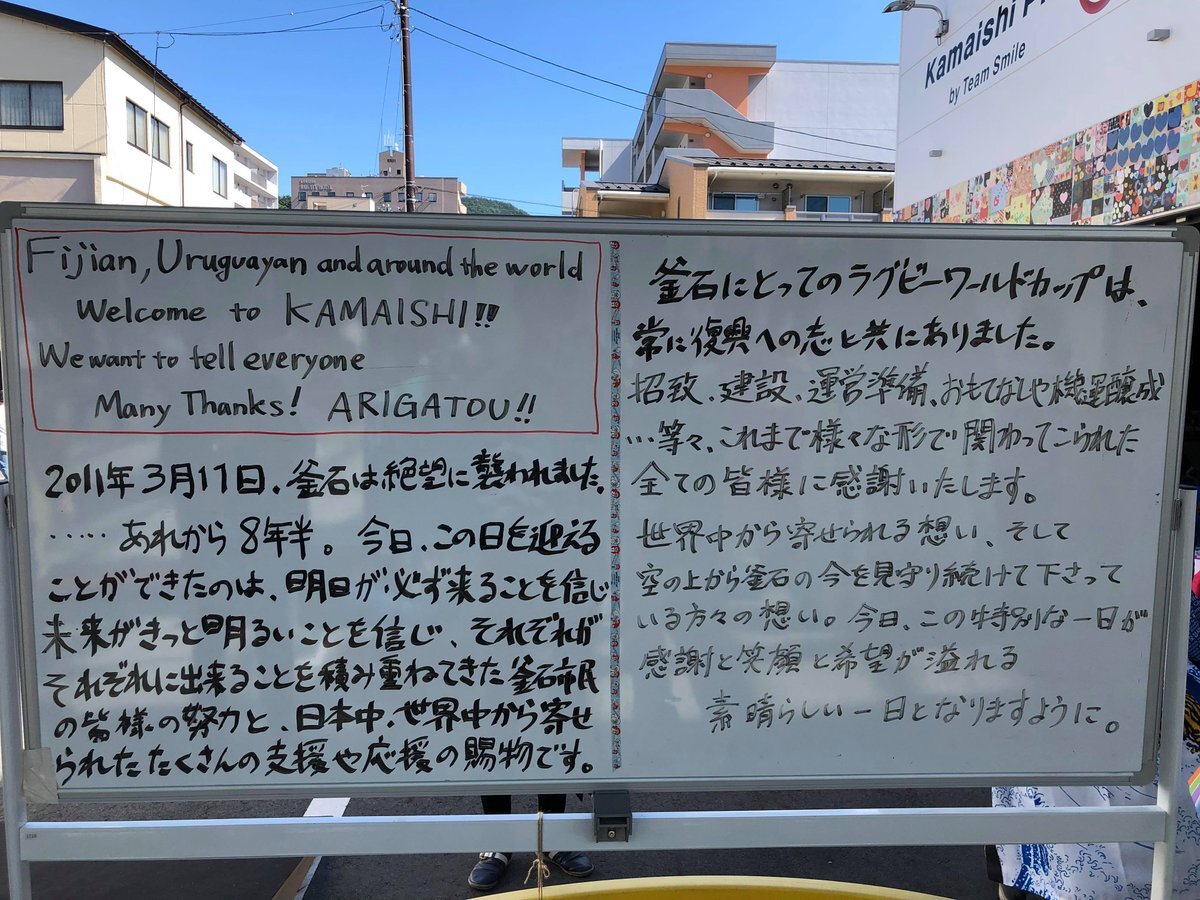 Kamaishi
by Team Smile
Fijian, Uruguayan and around the world
Welcome to KAMAISHI!!
We want to tell everyone
Many Thanks! ARIGATOU!!
2011年3月11日、釜石は絶望に襲われました。
……あれから8年半。今日、この日を迎える
ことができたのは、明日が必ず来ることを信じ
未来がきっと明るいことを信じ、それぞれが
それぞれに出来ることを積み重ねてきた釜石市民
の皆様の努力と、日本中、世界中から寄せ
られたたくさんの支援や応援の賜物です。
釜石にとってのラグビーワールドカップは、
常に復興への志と共にありました。
招致、建設、運営準備、おもてなしや機運醸成
…等々、これまで様々な形で関わってこられた
全ての皆様に感謝いたします。
世界中から寄せられる想い、そして
空の上から釜石の今を見守り続けて下さって
いる方々の想い。今日、この特別な一日が
感謝と笑顔と希望が溢れる
素晴らしい一日となりますように。